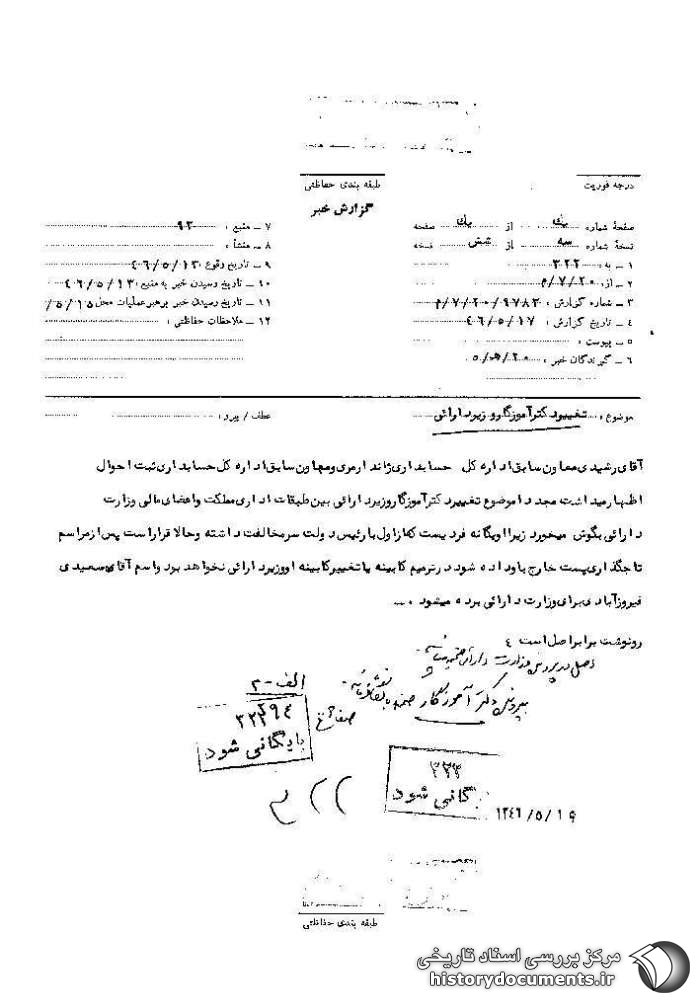 درجه فوریت
طبقه بندی حفاظتی
گزارش خبر
صفحهٔ شماره یک از یک صفحه
نسخهٔ شماره سه از شش نسخه
۱ ـ به: ۳۲۲
۲ ـ از: ۲۰/۷/م
۳ ـ شماره گزارش: ۹۷۸۲/۲۰/۷/م
۴ ـ تاریخ گزارش: ۴۶/۵/۱۷
۵ ـ پیوست:
۶ ـ گیرندگان خبر:
۷ ـ منبع: ۹۲
۸ ـ منشأ:
۹ ـ تاریخ وقوع: ۴۶/۵/۱۳
۱۰ ـ تاریخ رسیدن خبر به منبع: ۴۶/۵/۱۳
۱۱ ـ تاریخ رسیدن خبر برهبر عملیات محل ۵/۱۵/
۱۲ ـ ملاحظات حفاظتی:
موضوع: تغییر دکتر آموزگار وزیر دارائی
عطف / پیرو:
آقای رشیدی معاون سابق اداره کل حسابداری ژاندارمری و معاون سابق اداره کل حسابداری ثبت احوال
اظهار میداشت مجددا موضوع تغییر دکتر آموزگار وزیر دارائی بین طبقات اداری مملکت و اعضای مالی وزارت
دارائی بگوش میخورد زیرا او یگانه فردیست که از اول با رئیس دولت سر مخالفت داشته و حالا قرار است پس از مراسم
تاجگذاری پست خارج باو داده شود در ترمیم کابینه یا تغییر کابینه او وزیر دارائی نخواهد بود و اسم آقای سعیدی
فیروزآبادی برای وزارت دارائی برده میشود ....
رونوشت برابر اصل است
اصل در پرونده وزارت دارائی
پرونده دکتر آموزگار
الف-۲
بایگانی شود
۳۲۲
۳۲۳
گانی شود
۱۳۴۶/۵/۱۹
طبقه بندی حفاظتی
مرکز بررسی اسناد تاریخی
historydocuments.ir